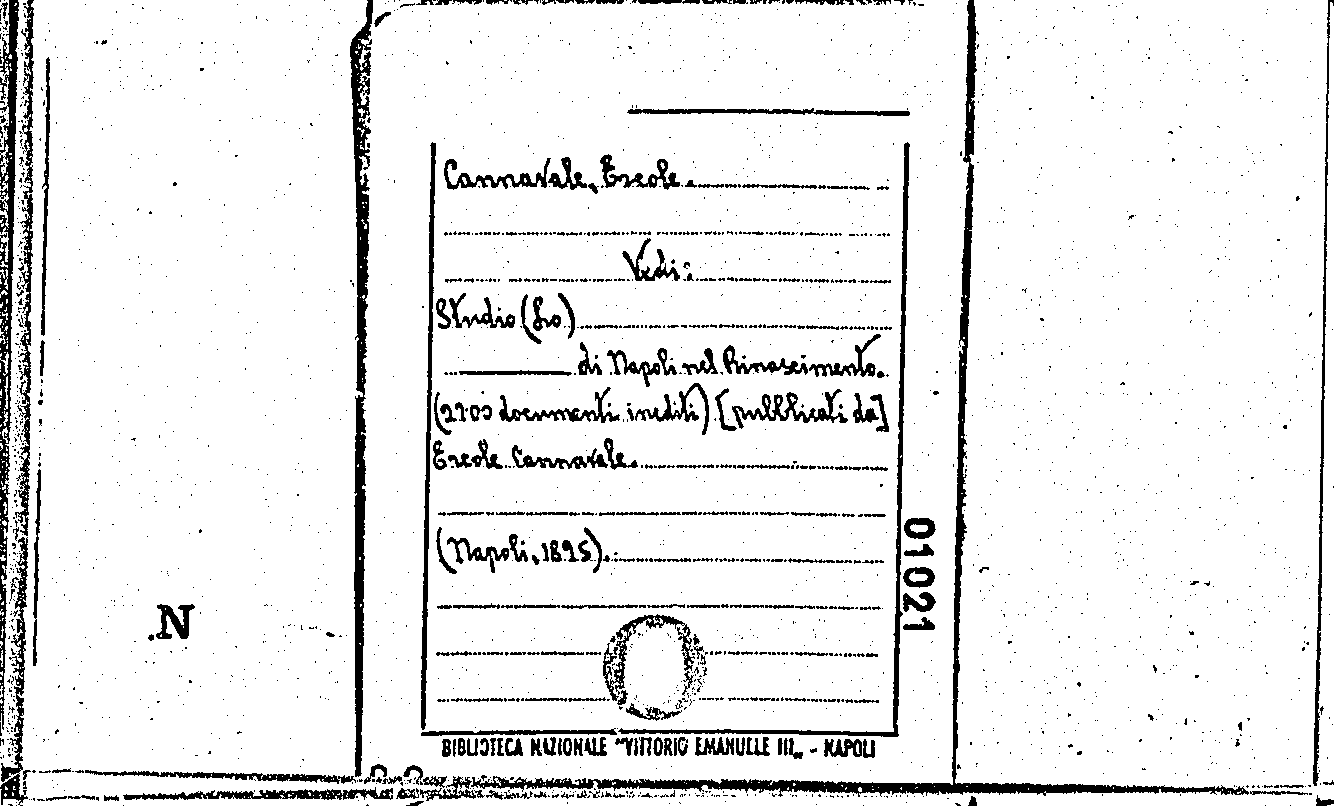 Cannavale, Ercole.
Vedi:
Studio (Lo)
di Napoli nel Rinascimento.
(2700 documenti inediti) [pubblicati da]
Ercole Cannavale.
(Napoli, 1895).
01021
.N
BIBLIOTECA NAZIONALE "VITTORIO EMANUELE III„ - NAPOLI